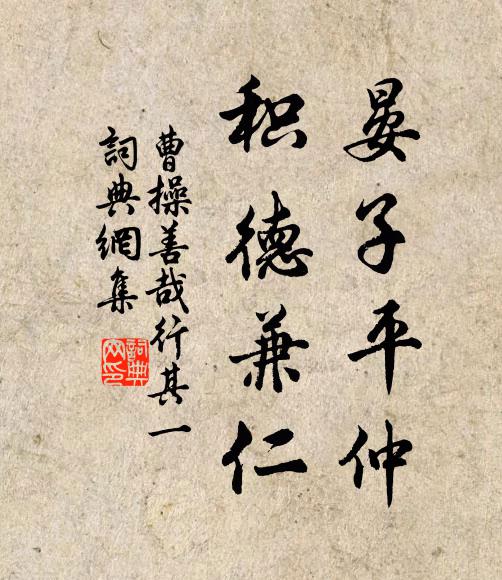 晏子平仲
积德兼仁
曹操善哉行其一
詞典網集
詞典网印